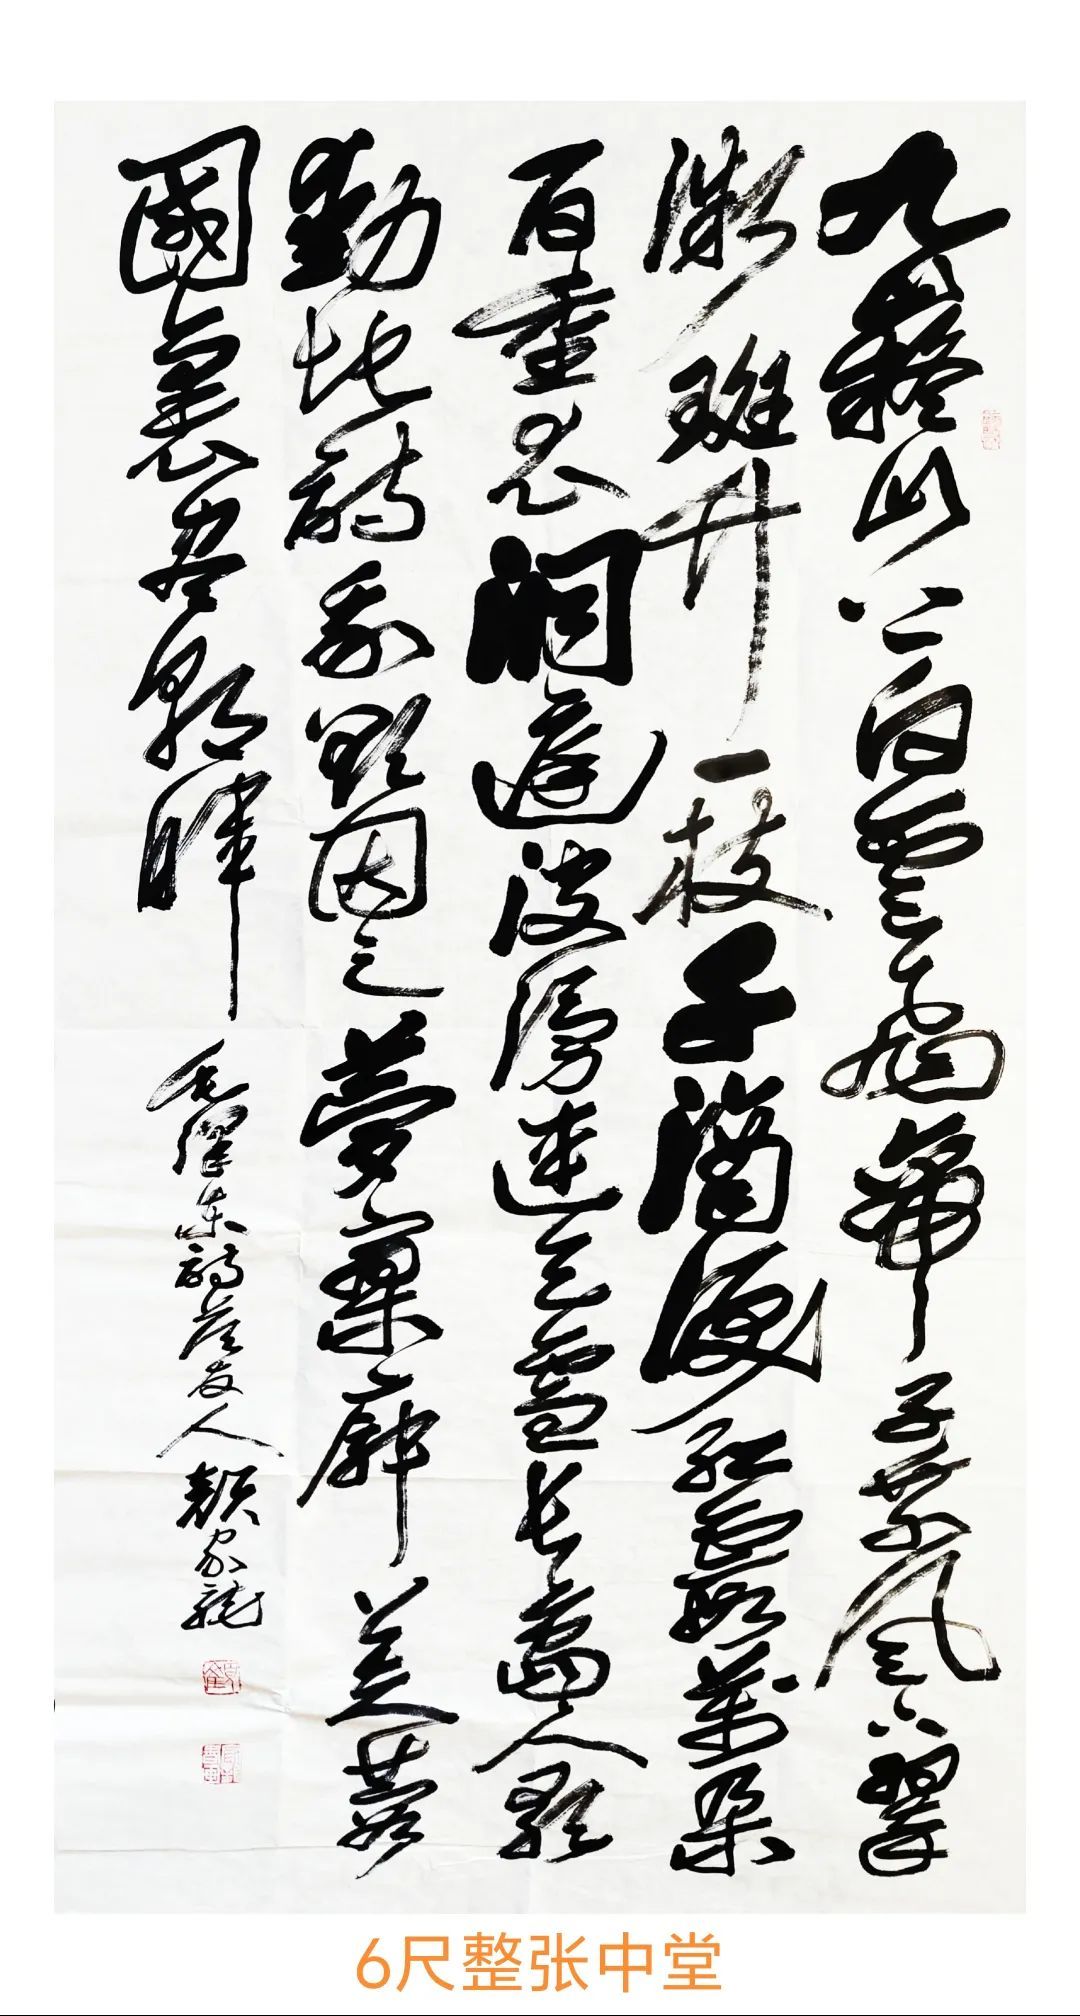 九嶷山上白雲飛帝子乘風下翠
微斑竹一枝千滴淚紅霞萬朵
百重衣洞庭波湧連天雪長島人歌
動地詩我欲因之夢寥廓芙蓉
國裏盡朝暉 毛澤東詩答友人 顏家龍
6尺整张中堂